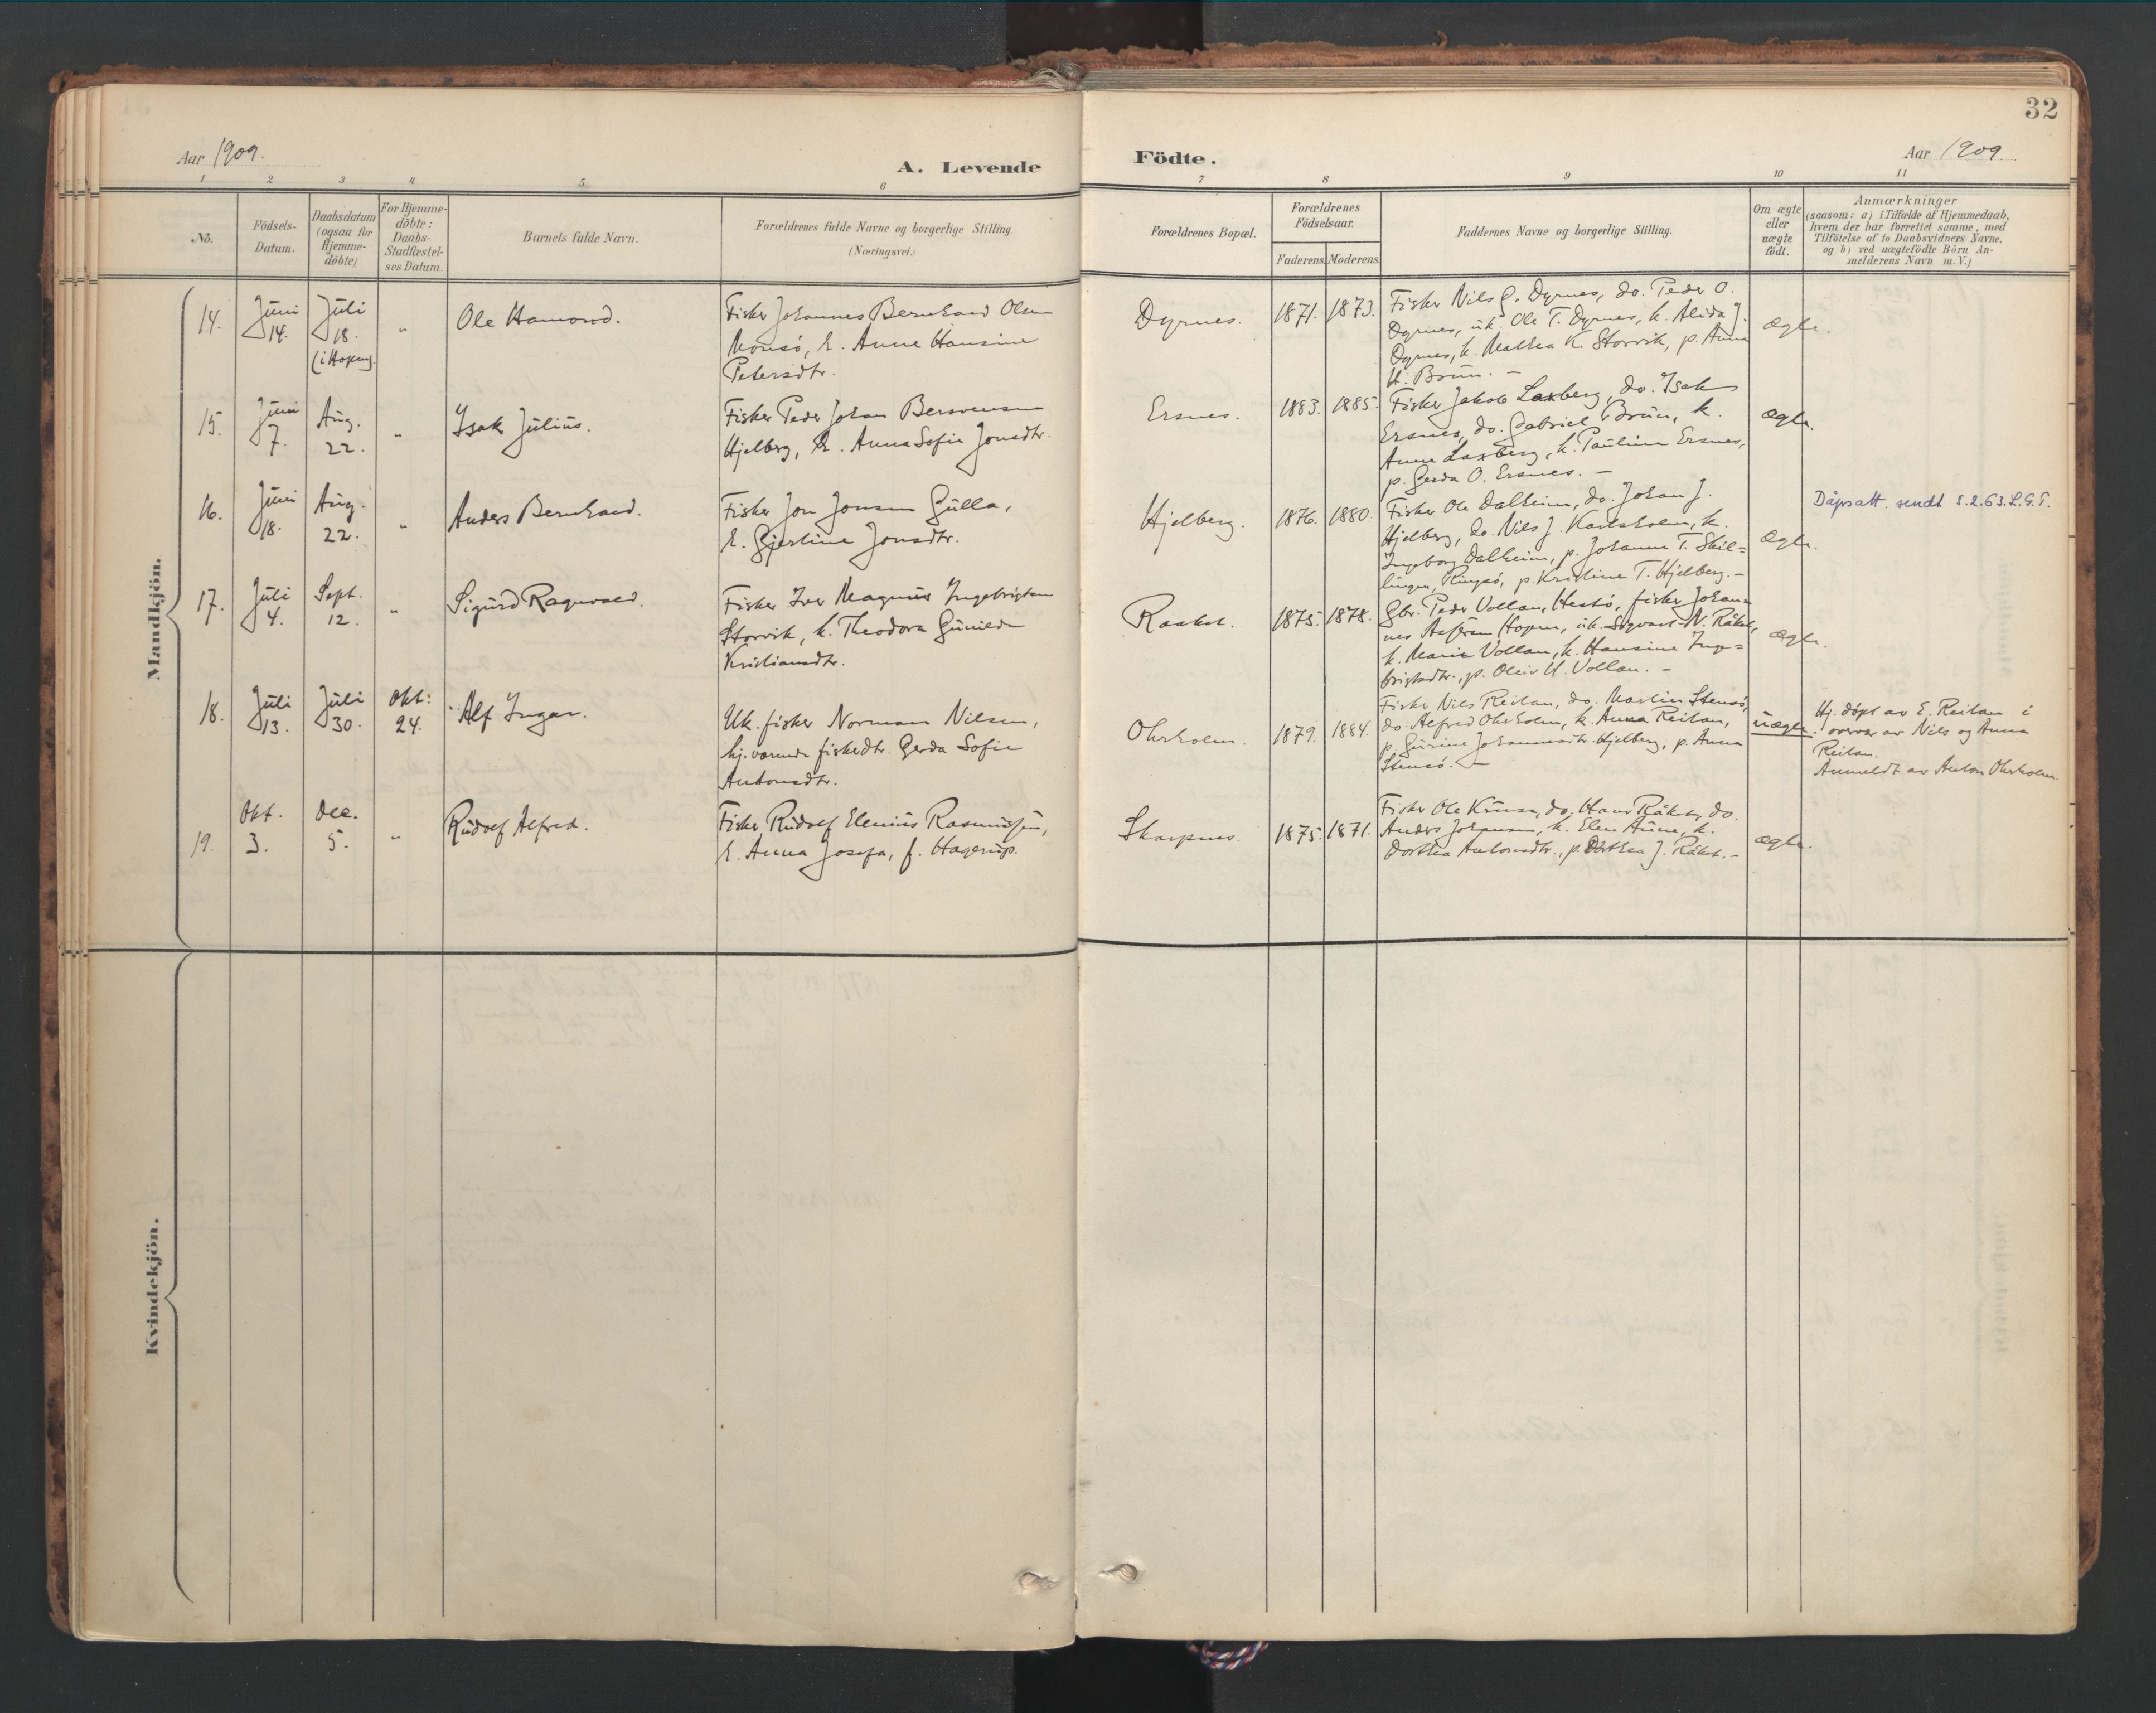 32
Aar 1909.
A. Levende
Födte.
Aar 1909.
1 2 3 4 5 6 7 8 9 10 11
No.
Födsels-
Datum.
Daabsdatum
(ogsaa for
Hjemme-
döbte)
For Hjemme-
döbte:
Daabs-
Stadfæstel-
ses Datum.
Barnets fulde Navn.
Forældrenes fulde Navne og borgerlige Stilling.
(Næringsvei.)
Forældrenes Bopæl.
Forældrenes
Födselsaar.
Faderens. Moderens.
Faddernes Navne og borgerlige Stilling.
Om ægte
eller
uægte
födt.
Anmærkninger
(saasom: a) i Tilfælde af Hjemmedaab,
hvem der har forrettet samme, med
Tilföielse af to Daabsvidners Navne,
og b) ved uægtefödte Börn An-
melderens Navn m. V.)
Mandkjön.
14.
Juni
14.
Juli
18.
(i Hopen)
"
Ole Hamond.
Fisker Johannes Bernhard Olsen
Monsö, h. Anne Hansine
Petersdtr.
Dyrnes.
1871. 1873.
Fisker Nils G. Dyrnes, do. Peder O.
Dyrnes, uk. Ole T. Dyrnes, k. Alida J.
Dyrnes, k. Mathea K. Storvik, p. Anna
H. Brun. –
ægte.
15.
Juni
7.
Aug.
22.
"
Isak Julius.
Fisker Peder Johan Bersvensen
Hjelberg, h. Anna Sofie Jonsdtr.
Ersnes.
1883. 1885.
Fisker Jakob Laxberg, do. Isak
Ersnes, do. Gabriel Brun, k.
Anne Laxberg, k. Pauline Ersnes,
p. Gerda O. Ersnes. –
ægte.
16.
Juni
18.
Aug.
22.
"
Anders Bernhard.
Fisker Jon Jonsen Gulla,
h. Gjertine Jonsdtr.
Hjelberg.
1876. 1880.
Fisker Ole Dalheim, do. Johan J.
Hjelberg, do. Nils J. Karlsholm, k.
Ingeborg Dalheim, p. Johanne T. Skil=
lingen, Ringsö, p. Kristine T. Hjelberg. –
ægte.
Dåpsatt. sendt 5.2.63. L.G.T.
17.
Juli
4.
Sept.
12.
"
Sigurd Ragnvald.
Fisker Iver Magnus Ingebrigtsen
Storvik, h. Theodora Gunilde
Kristiansdtr.
Raaket.
1875. 1878.
Gbr. Peder Vollan, Hestö, fisker Johan=
nes Hopen, uk. Sigvart N. Råket,
k. Marie Vollan, k. Hansine Inge=
brigtsdtr., p. Oliv U. Vollan. –
ægte.
18.
Juli
13.
Juli
30.
Okt:
24.
Alf Ingar.
Uk. fisker Norman Nilsen,
hj. værende fiskerdtr. Gerda Sofie
Antonsdtr.
Ohrholm.
1879. 1884.
Fisker Nils Reitan, do. Martin Stensö,
do. Alfred Ohrholm, k. Anna Reitan,
p. Gurine Johannesdtr. Hjelberg, p. Anna
Stensö. –
uægte.
Hj. døpt av E. Reitan i
overvær av Nils og Anna
Reitan.
Anmeldt av Anton Ohrholm.
19.
Okt.
3.
Dec.
5.
"
Rudolf Alfred.
Fisker Rudolf Elenius Rasmussen,
h. Anna Josefa, f. Hagerup.
Skarpnes.
1875. 1871.
Fisker Ole Krusen, do. Hans Råket, do.
Anders Johansen, k. Elen Aune, k.
Dorthea Antonsdtr., p. Dorthea J. Råket. –
ægte.
Kvindekjön.